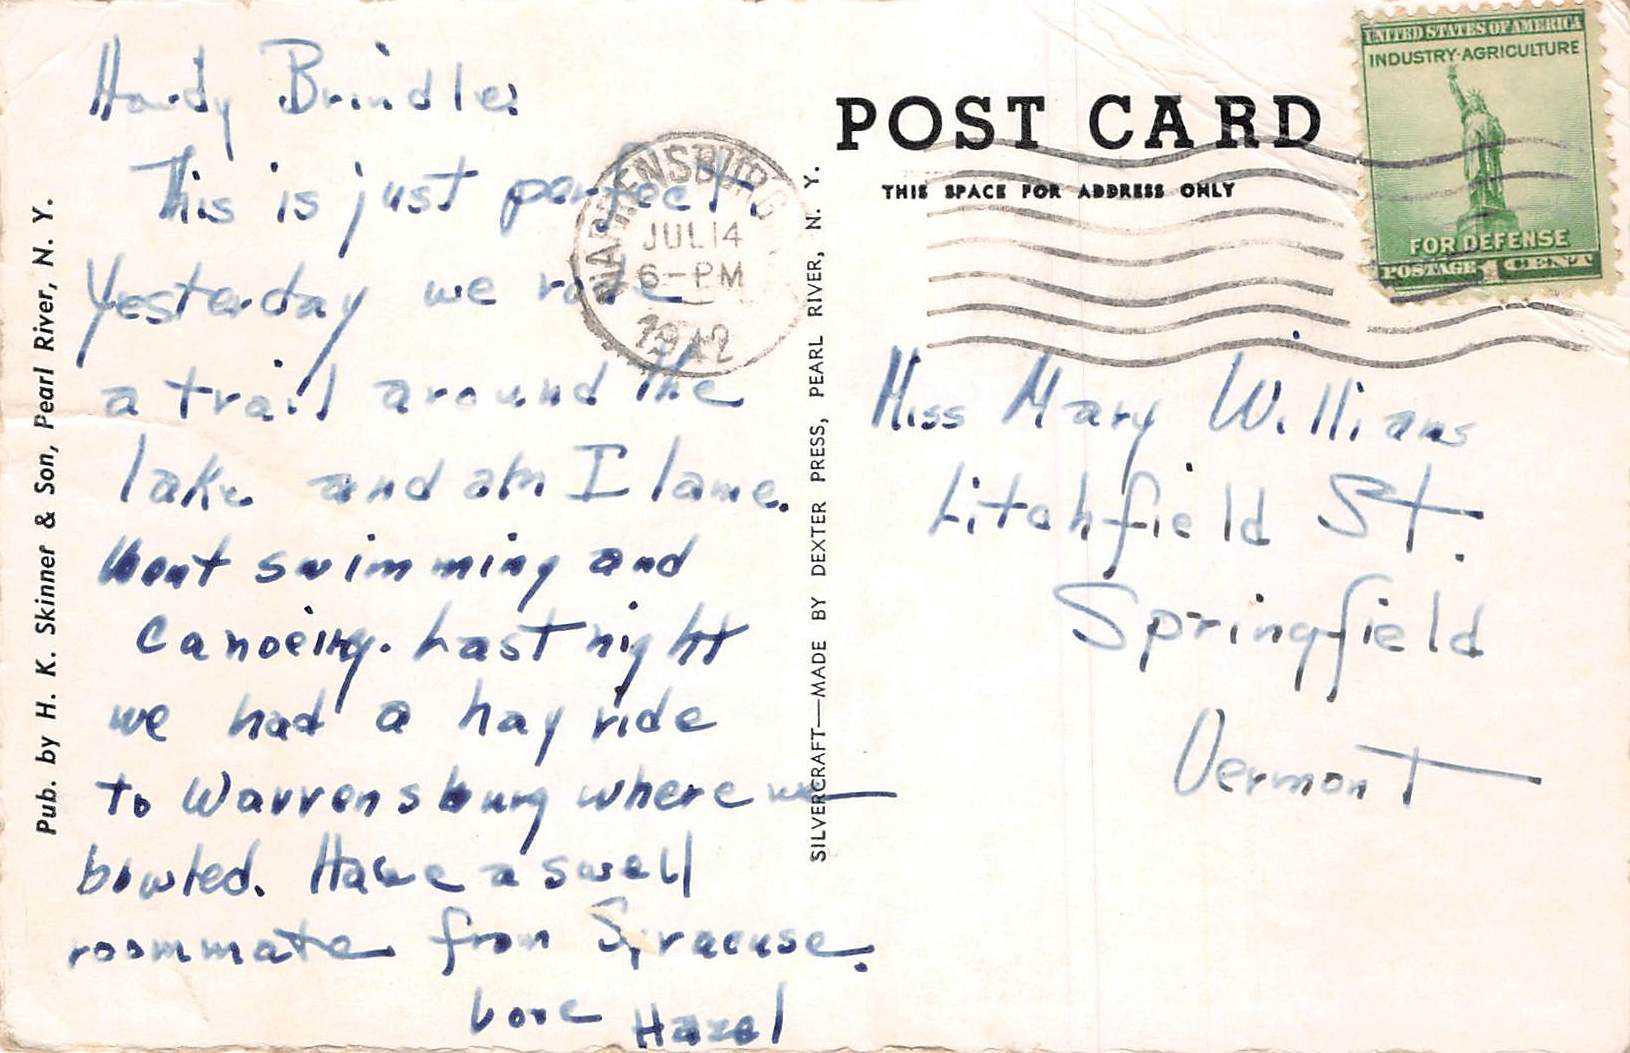 Howdy Brindle:
This is just perfect.
Yesterday we rode
a trail around the
lake and am I lame.
Went swimming and
Canoeing. Last night
we had a hay ride
to Warrensburg where we
bowled. Have a swell
roommate from Syracuse.
Love Hazel
Pub. by H. K. Skinner & Son, Pearl River, N. Y.
SILVERCRAFT—MADE BY DEXTER PRESS, PEARL RIVER, N. Y.
WARRENSBURG
JUL 14
6-PM
1942
POST CARD
THIS SPACE FOR ADDRESS ONLY
UNITED STATES OF AMERICA
INDUSTRY·AGRICULTURE
FOR DEFENSE
POSTAGE 1 CENT
Miss Mary Williams
Litchfield St.
Springfield
Vermont